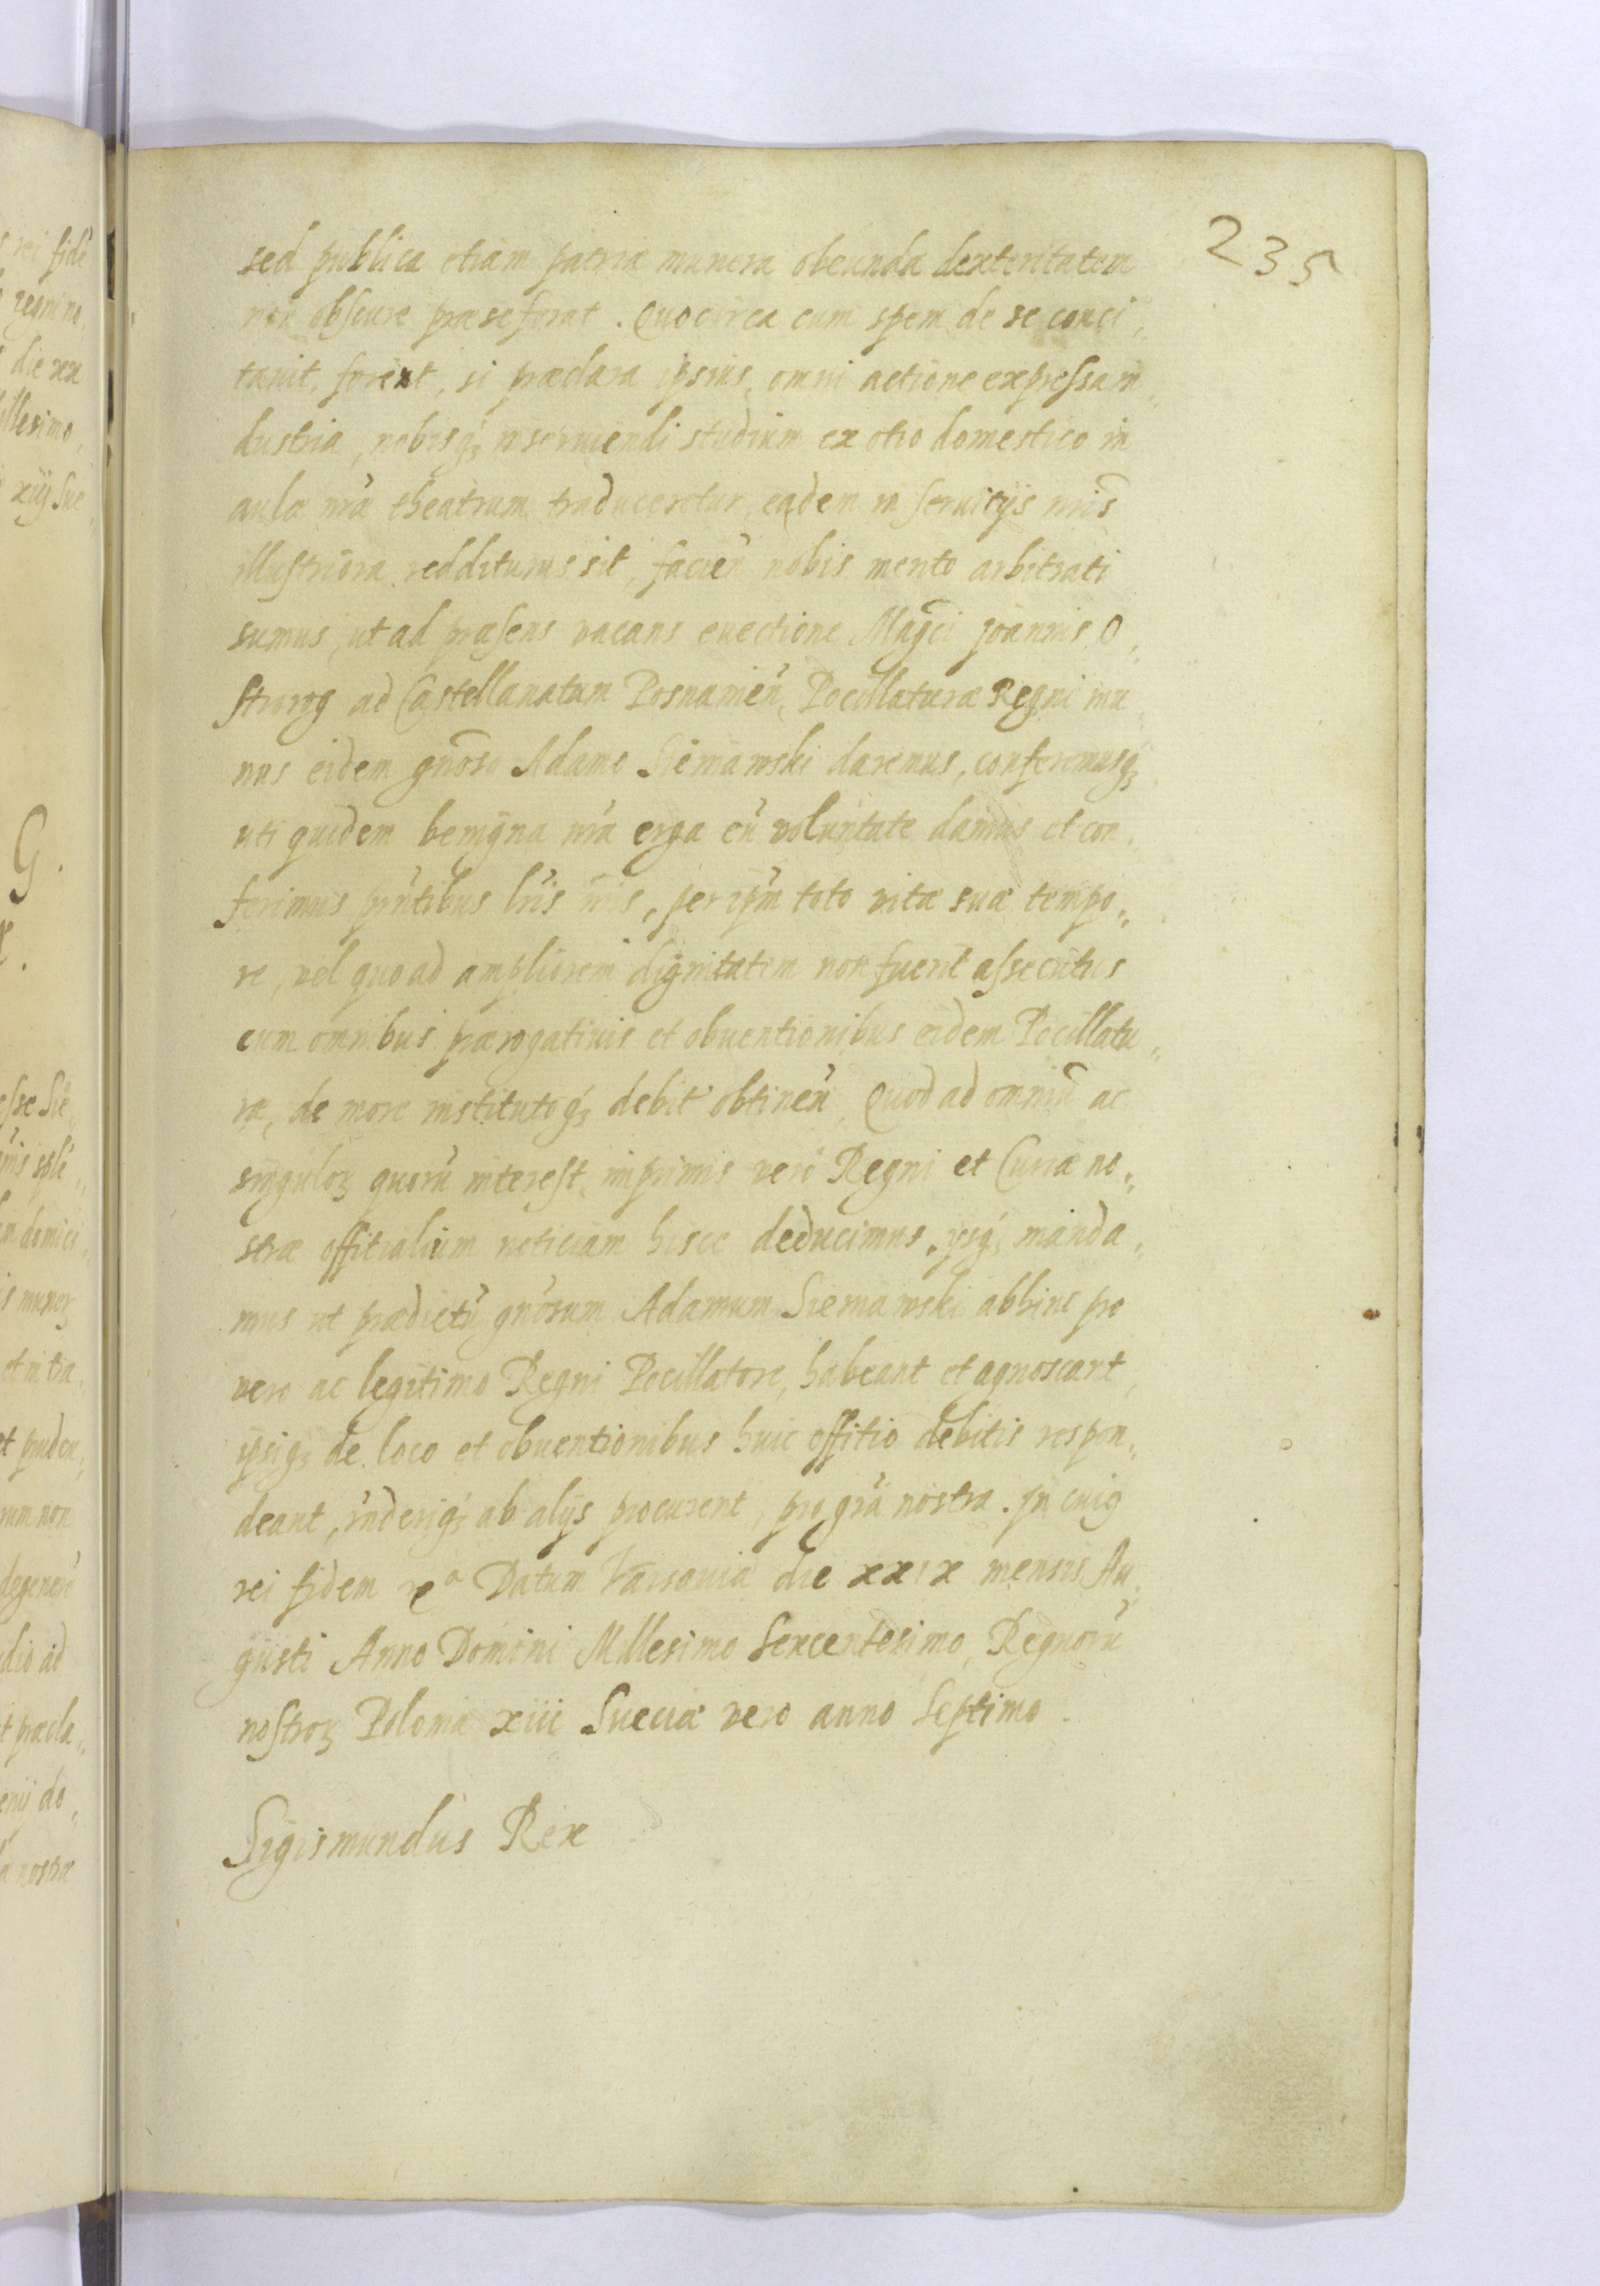 235
sed publica etiam patriæ munera obeunda dexteritatem
non obscure præseferat. Quocirca cum spem de se conci,
tavit forent, si præclara ipsius omni actione expressa in,
dustria, nobisq; inserviendi studium ex otio domestico in
aulæ nr̃æ theatrum traduceretur, eadem in servitijs nr̃is
illustriora redditurus sit, facien̄ nobis merito arbitrati
sumus, ut ad præsens vacans evectione Mag̃ci Joannis O,
strorog ad Castellanatum Posnanien̄, Pocillaturæ Regni mu
nus eidem gñoso Adamo Siemawski daremus, conferemusq;
uti quidem benigna nr̃a erga eū voluntate damus et con,
ferimus pñtibus lr̃is nr̃is, per ip̃m toto vitæ suæ tempo,,
re, vel quoad ampliorem dignitatem non fuerit assecutus
cum omnibus prærogativis et obventionibus eidem Pocillatu,,
ræ, de more institutoq; debit obtinen̄. Quod ad omniū ac
singuloꝝ quorū interest, inprimis vero Regni et Curiæ no,,
stræ offitialium notitiam hisce deducimus, ijsq; manda,
mus ut prædictū gñosum Adamum Siemawski abhinc pro
vero ac legitimo Regni Pocillatore, habeant et agnoscant,
ipsiq; de loco et obventionibus huic offitio debitis respon,
deant, inderiq; ab alijs procurent, pro gr̃a nostra. In cuiꝯ
rei fidem &c Datum Varsaviæ die xxix mensis Au,
gusti Anno Domini Millesimo Sexcentesimo, Regnorū
nostroꝝ Poloniæ xiii Sueciæ vero anno Septimo.
Sigismundus Rex